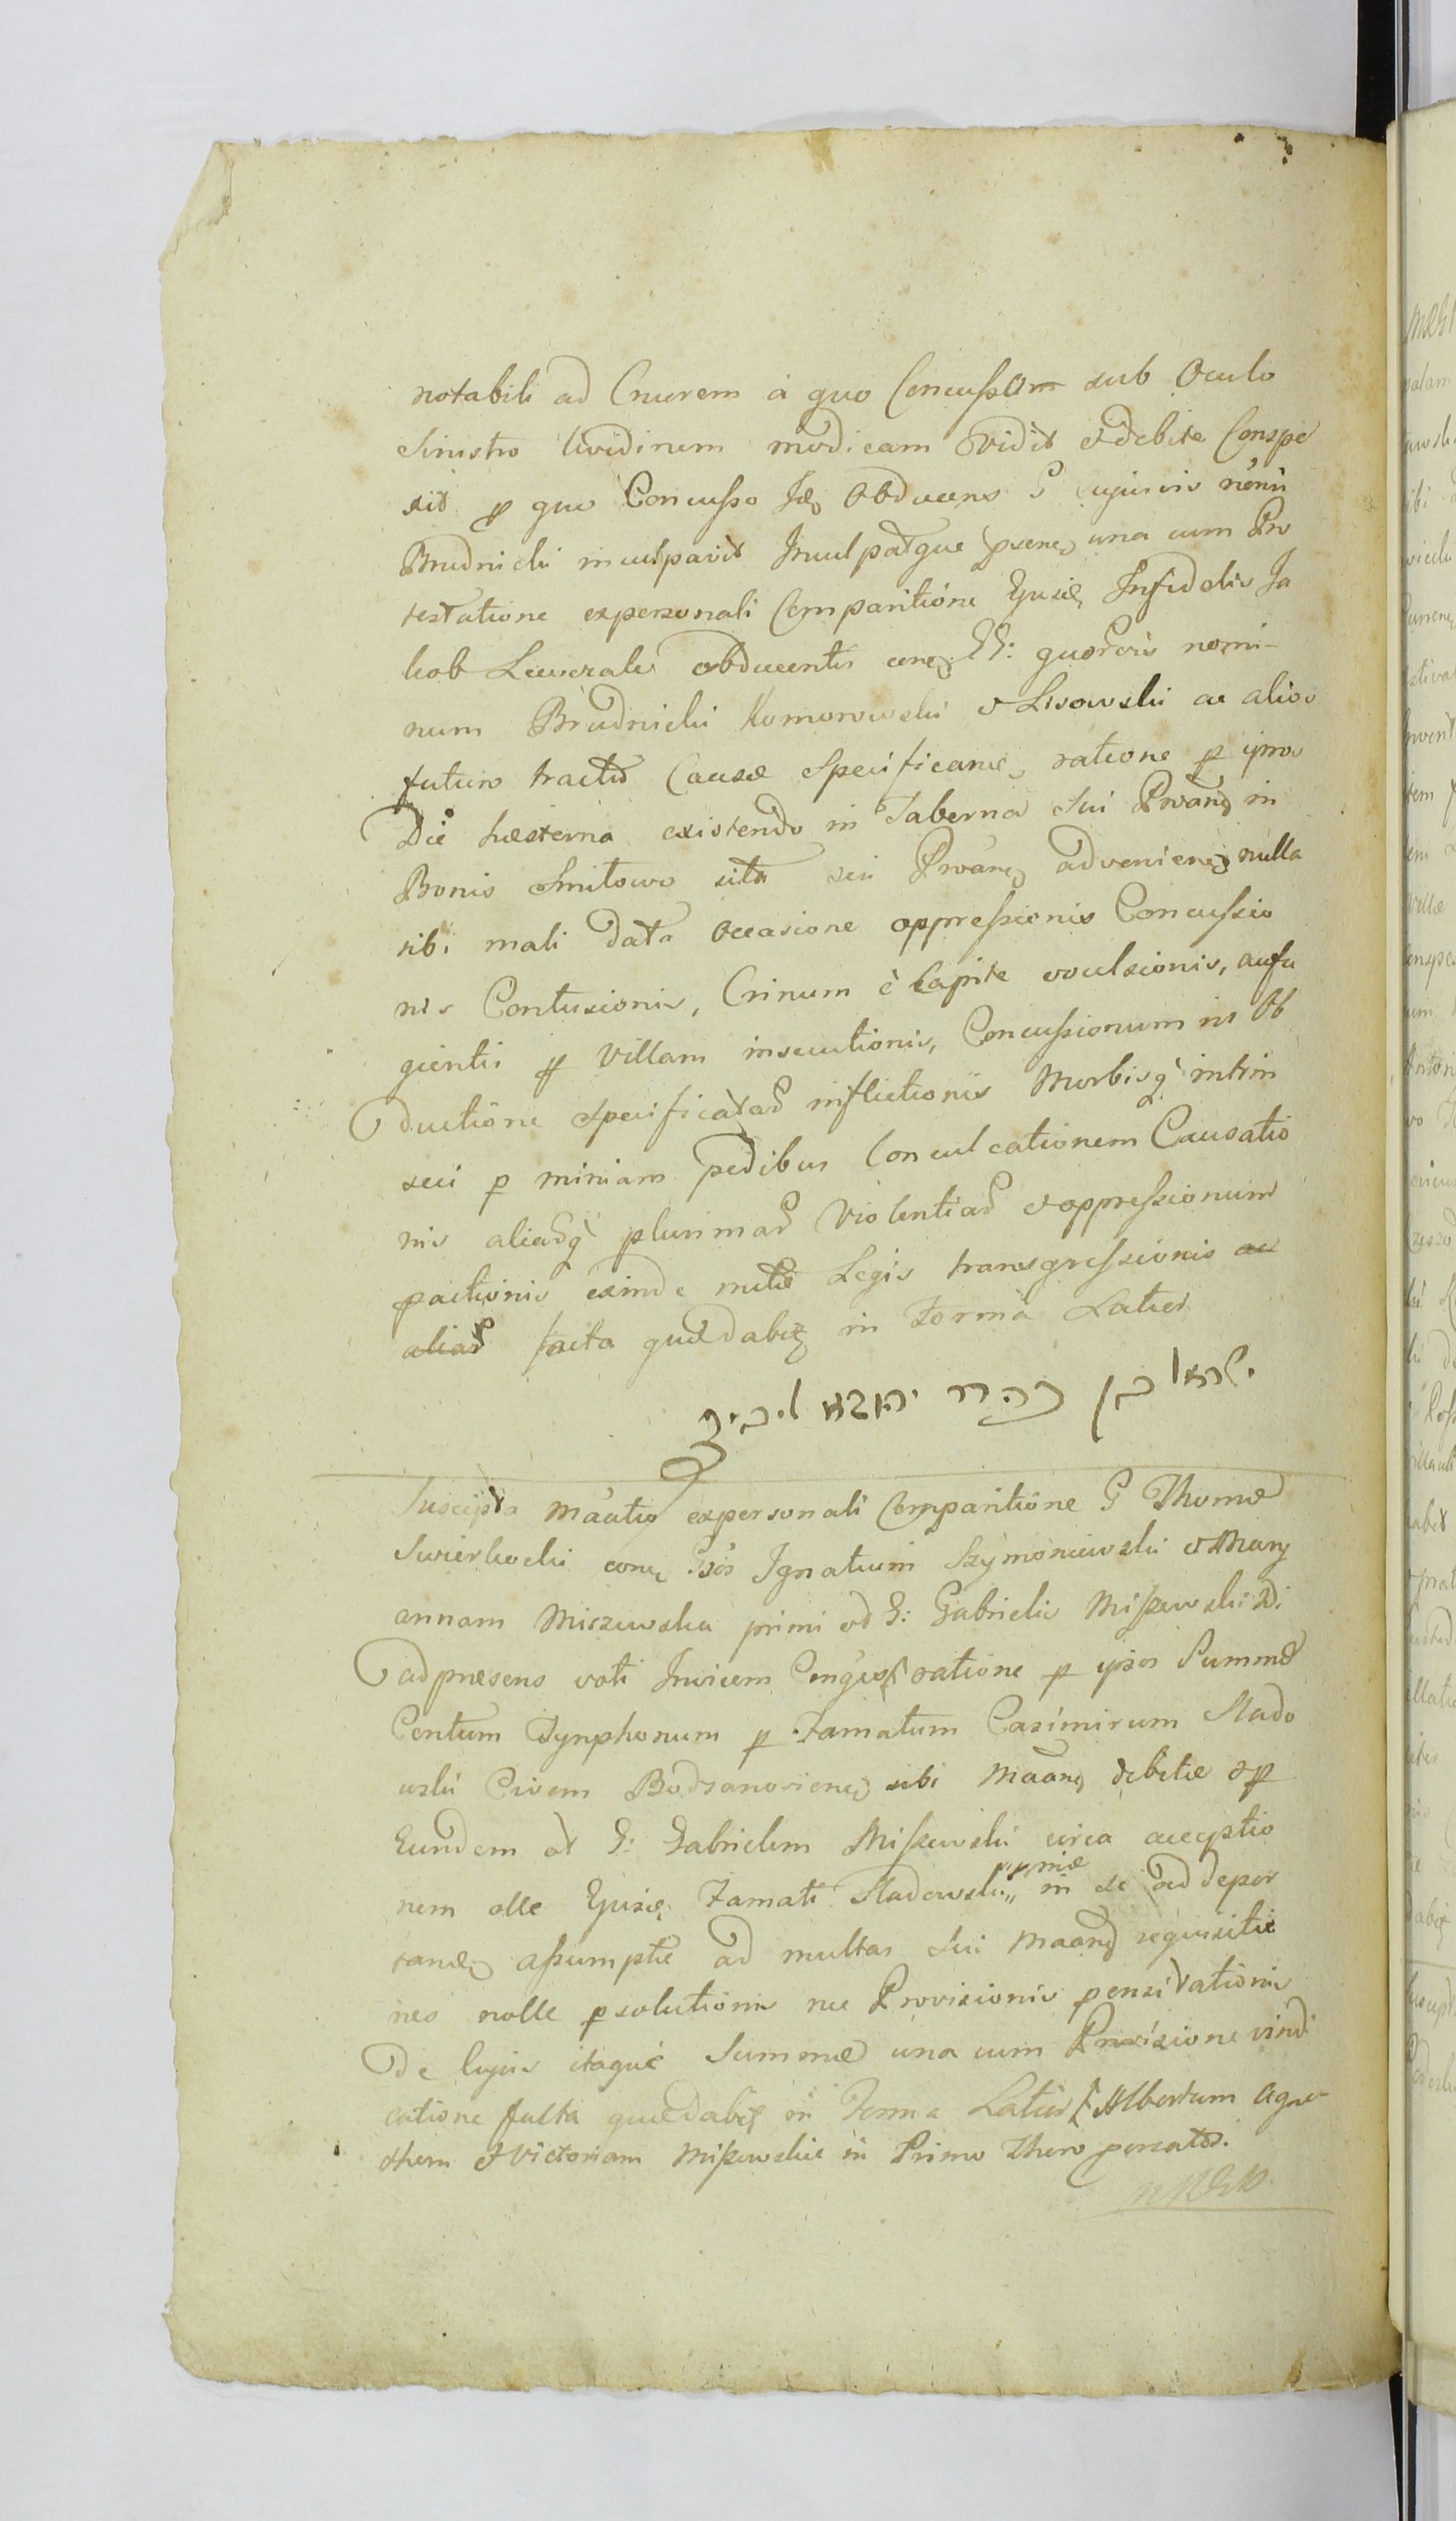 notabili ad Cruorem à quo Concussum sub Oculo
Sinistro lividinem modicam vidit et debite Conspe
xit p quo Concusso Idq Obducens G cujusvis nōnū
Brudnicki inculpavit Inculpatque pnene una cum Pro
testatione expersonali Comparitione Ejusdē Infidelis Ja
kob Leweraler obducentis conq GG: quorvis nomi-
num Brudnicki Komorowski et Lisowski ac alios
futuro tractu Causæ Specificane ratione p ipsos
Die hæsterna existendo in Taberna sui Pnoanq in
Bonis Smitowo sita sui Pnoanq advenienq nulla
sibi mali data Occasione oppressionis Concussio
nis Contusionis, Crinum è Capite evulsionis, aufu
gientis p Villam insecutionis, Concussionum in Ob
ductione Specificatar inflictionis Morbisq intrin
seci p nimiam pedibus Conculcationem Causatio
nis aliarq plurimar Violentiar et oppressionum
patrationis exinde mutæ Legis transgressionis ac
aliar facta quædabit in Forma Latiori
Suscepta Maatio expersonali Comparitione G Thomæ
Swierkocki conq Gsos Ignatium Szymoniewski et Mary
annam Miszewska primi od G: Gabrielis Miszewski 2di
ad præsens voti Invicem Conjuges ratione p ipsos Summæ
Centum Tynphonum p Famatum Casimirum Stado
wski Civem Bodzanoviene sibi Maanq debitæ et p
Eundem et G: Gabrielem Miszewski circa acceptio
nem olle Ejusdē Famati Stadowski pniæ in se ad depor
tandq assumptæ ad multas sui Maanq requisitio
nes nolle psolutionis nec Provisionis pensitationis
De Cujus itaque Summæ una cum Provisione vindi
catione facta quædabit in Forma Latiori Albertum Agne
them et Victoriam Miszewskie in Primo Thoro procatos.